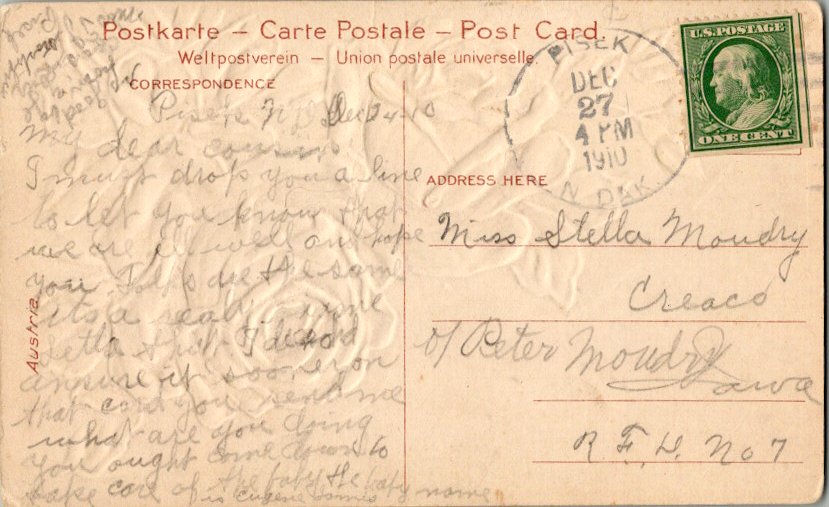 Postkarte – Carte Postale – Post Card.
Weltpostverein – Union postale universelle.
CORRESPONDENCE
Pisek N D Dec 24-10
My dear cousin
I must drop you a line
to let you know that
we are all well and hope
you Folks are the same
its a real
Stella that I did not
ansure it sooner on
that card you send me
what are you doing
you ought come down to
take care of the baby the baby name
is Eugene
Austria
PISEK
DEC
27
4 PM
1910
N. DAK
U.S. POSTAGE
ONE CENT
ADDRESS HERE
Miss Stella Moudry
Creaco
c/o Peter Moudry
Iowa
R. F. D. No 7